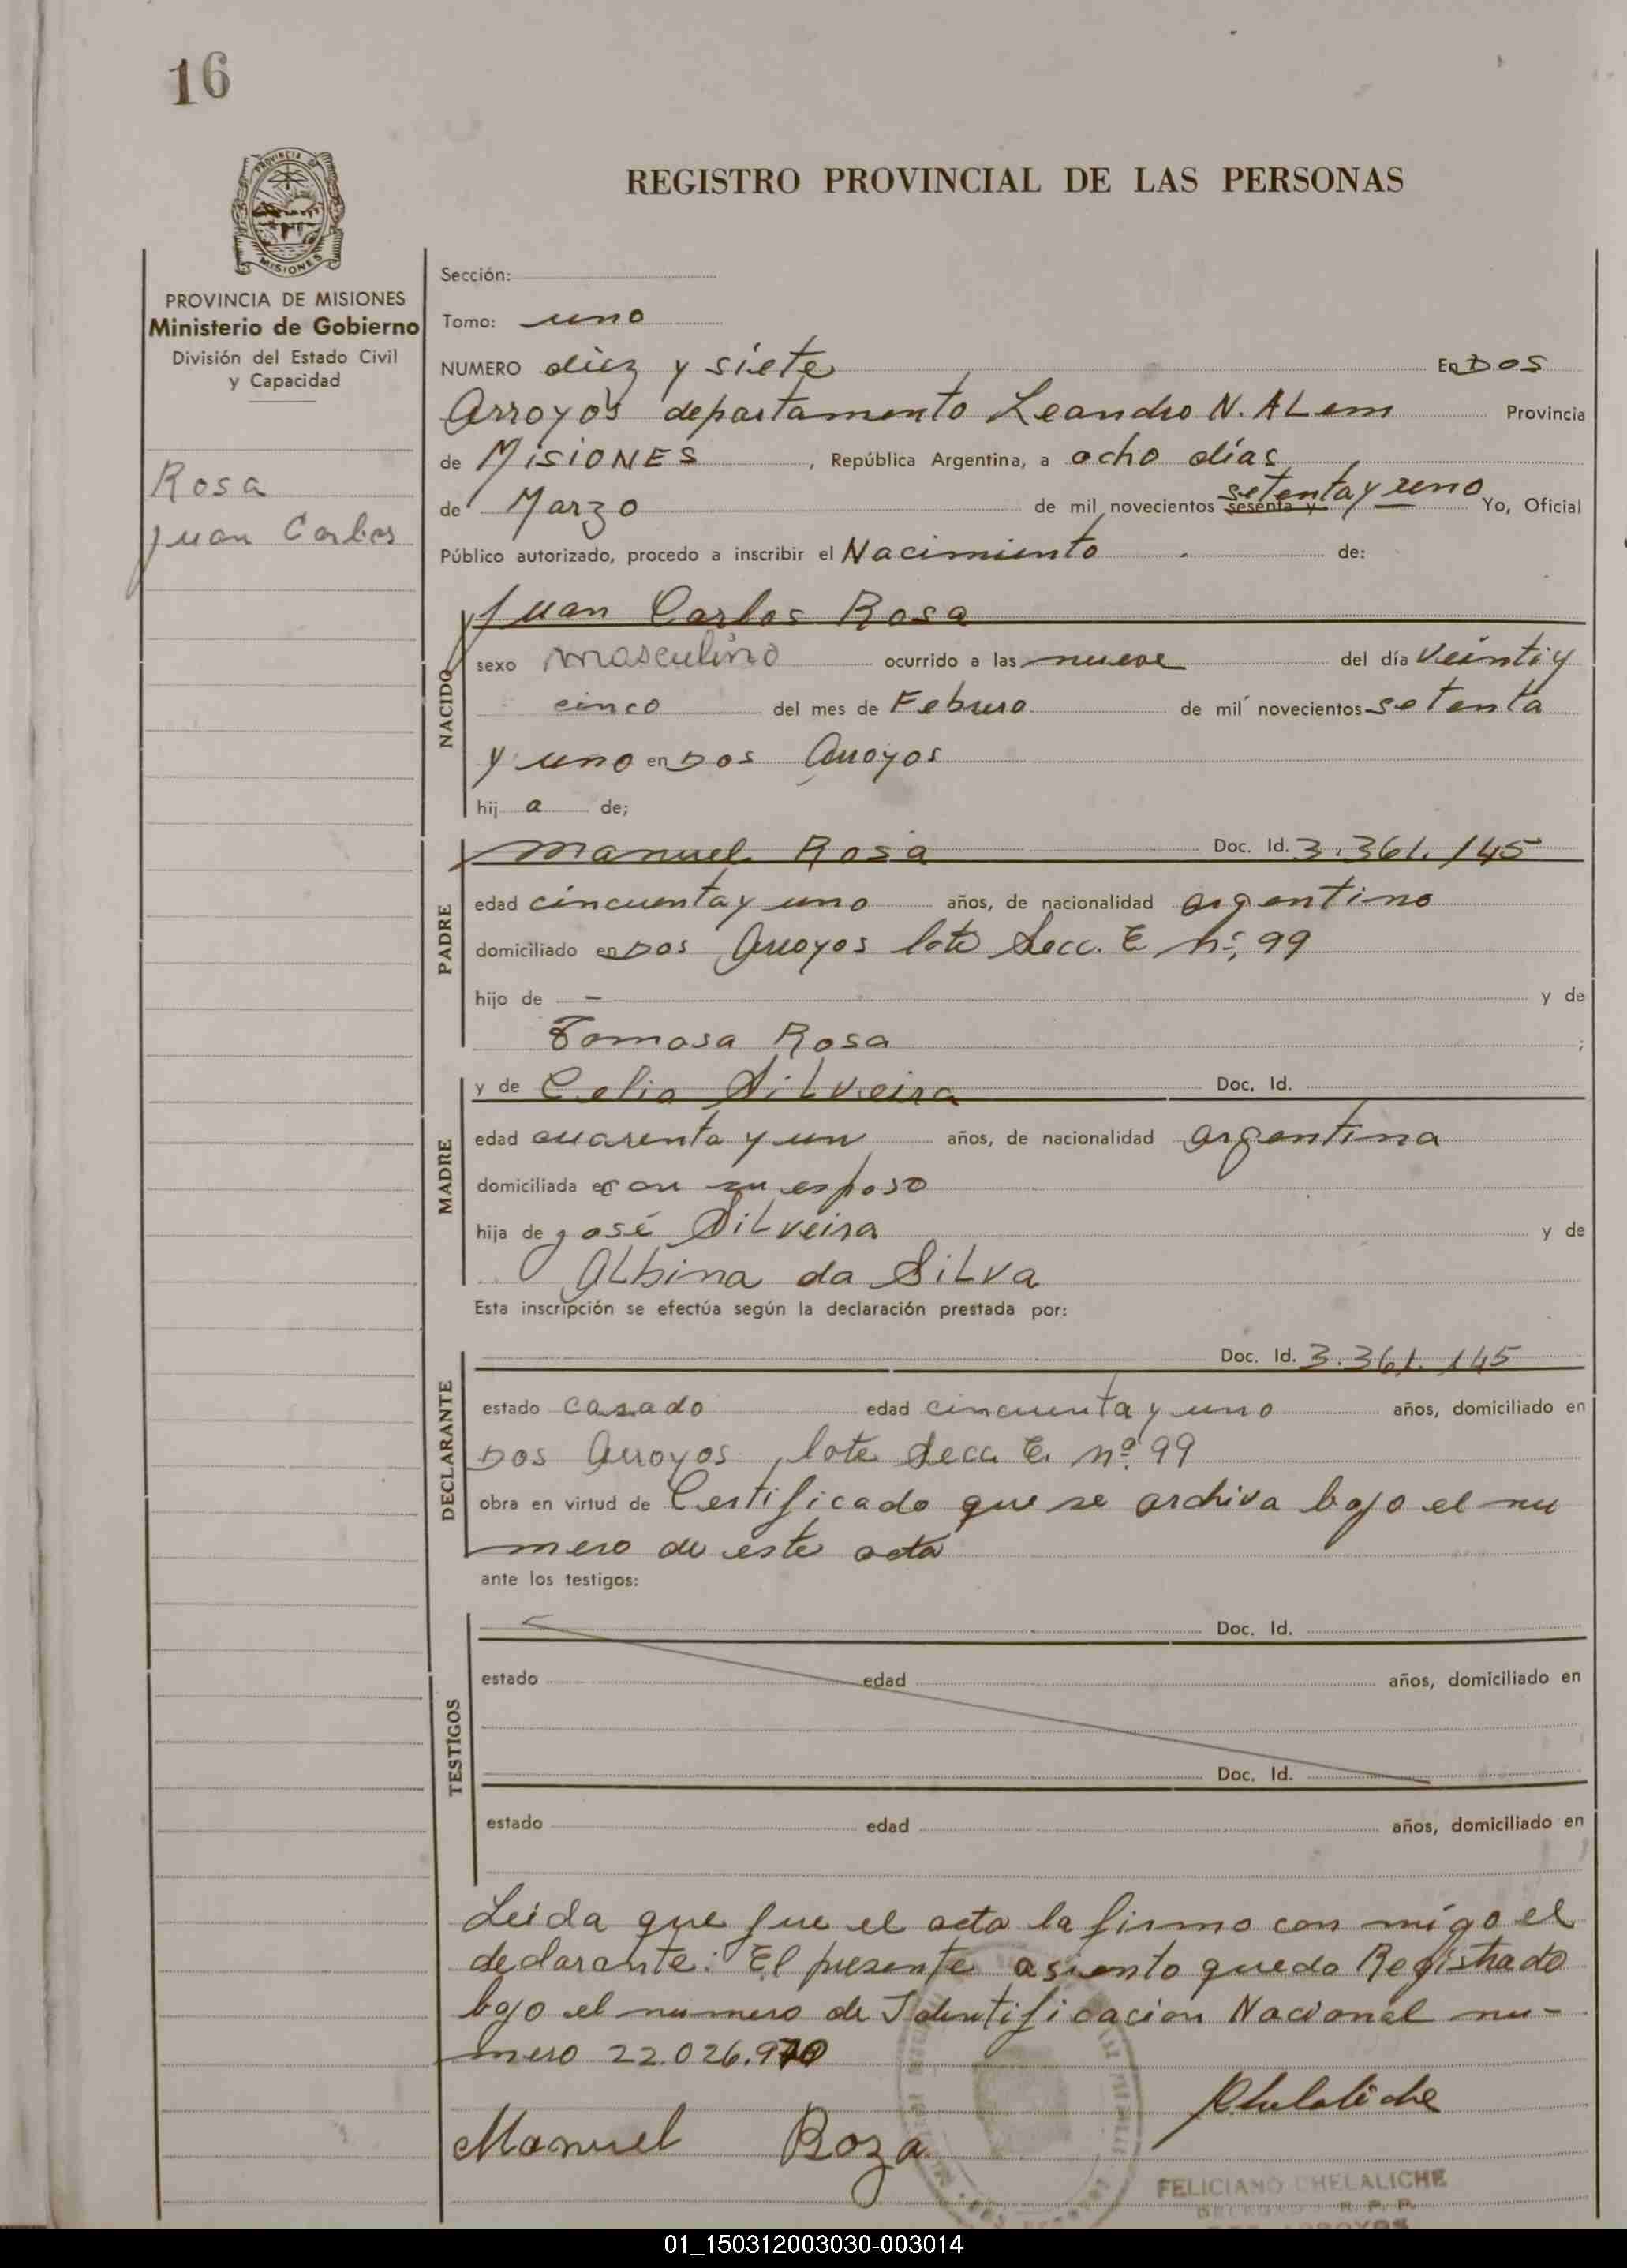 16
REGISTRO PROVINCIAL DE LAS PERSONAS
PROVINCIA DE MISIONES
Ministerio de Gobierno
División del Estado Civil
y Capacidad
Rosa
Juan Carlos
Sección:
Tomo: uno
NUMERO diez y siete En Dos
Arroyos departamento Leandro N. ALem Provincia
de MISIONES, República Argentina, a ocho días
de Marzo de mil novecientos sesenta y setenta y uno Yo, Oficial
Público autorizado, procedo a inscribir el Nacimiento de:
Juan Carlos Rosa
NACIDO
sexo masculino ocurrido a las nueve del día veinti y
cinco del mes de Febrero de mil novecientos setenta
y uno en Dos Arroyos
hij a de;
PADRE
Manuel Rosa Doc. Id. 3.361.145
edad cincuenta y uno años, de nacionalidad argentino
domiciliado en Dos Arroyos lote Secc. E nº, 99
hijo de — y de
Tomasa Rosa ;
MADRE
y de Celia Silveira Doc. Id.
edad cuarenta y un años, de nacionalidad argentina
domiciliada en con su esposo
hija de José Silveira y de
Albina da Silva
Esta inscripción se efectúa según la declaración prestada por:
DECLARANTE
Doc. Id. 3.361.145
estado casado edad cincuenta y uno años, domiciliado en
Dos Arroyos, lote Secc E. nº. 99
obra en virtud de Certificado que se archiva bajo el nu
mero de este acta
ante los testigos:
TESTIGOS
Doc. Id.
estado edad años, domiciliado en
Doc. Id.
estado edad años, domiciliado en
Leida que fue el acta la firma con migo el
declarante: El presente asiento queda Registrado
bajo el numero de Identificacion Nacional nu-
mero 22.026.970
Manuel Roza
FELICIANO CHELALICHE
DELEGADO R. P. P.
DOS ARROYOS
01_150312003030-003014